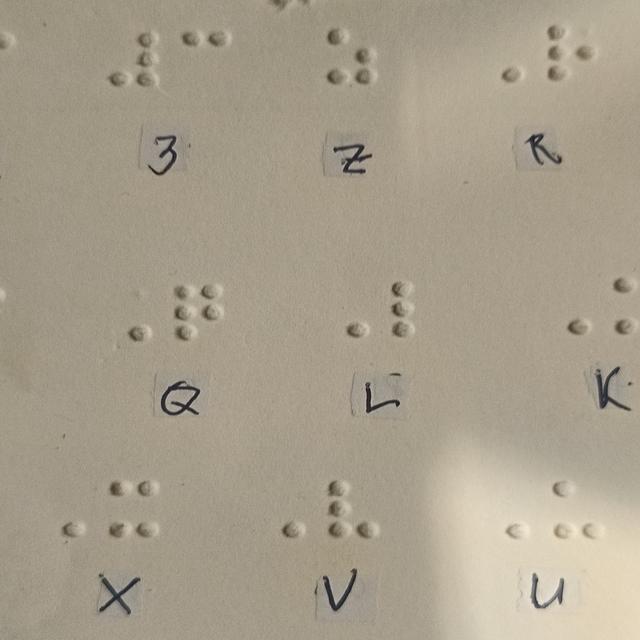 ⠼⠉ ⠵ ⠠⠗
3 Z R
⠠⠟ ⠠⠇ ⠠⠅
Q L K
⠠⠭ ⠠⠧ ⠠⠥
X V U